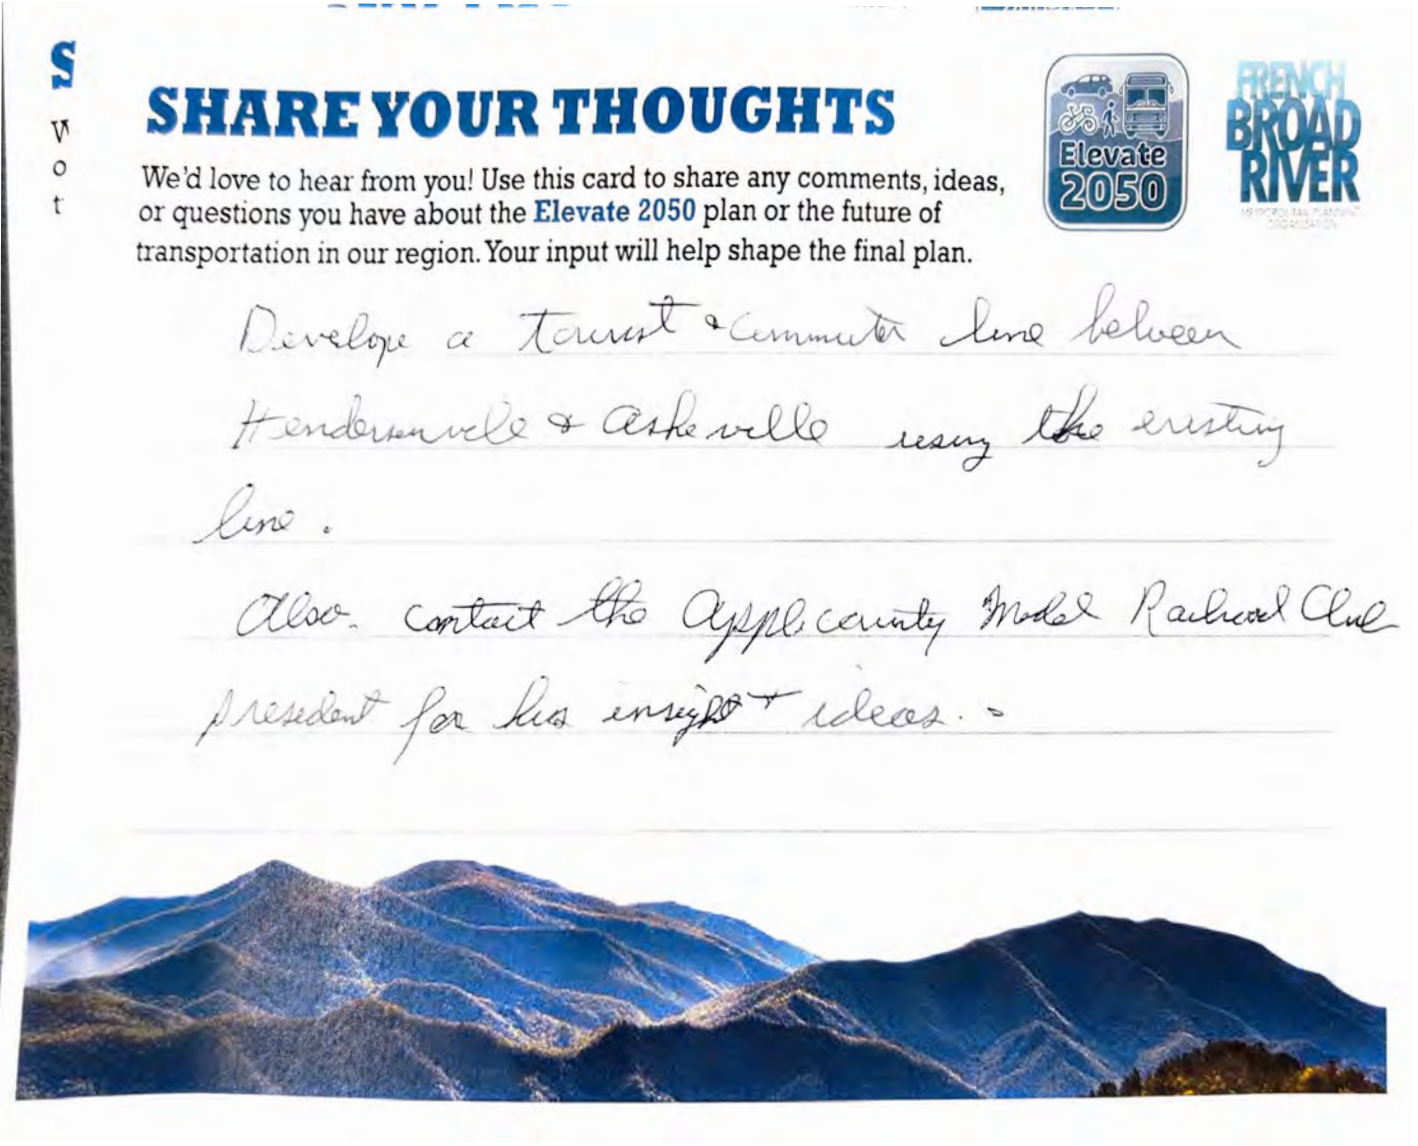 S
SHARE YOUR THOUGHTS
W
o
t
We'd love to hear from you! Use this card to share any comments, ideas,
or questions you have about the Elevate 2050 plan or the future of
transportation in our region. Your input will help shape the final plan.
Elevate
2050
FRENCH
BROAD
RIVER
METROPOLITAN PLANNING
ORGANIZATION
Develope a tourist & commuter line between
Hendersonville & Asheville using the existing
line.
Also. contact the Apple county Model Railroad Club
president for his insight + ideas.